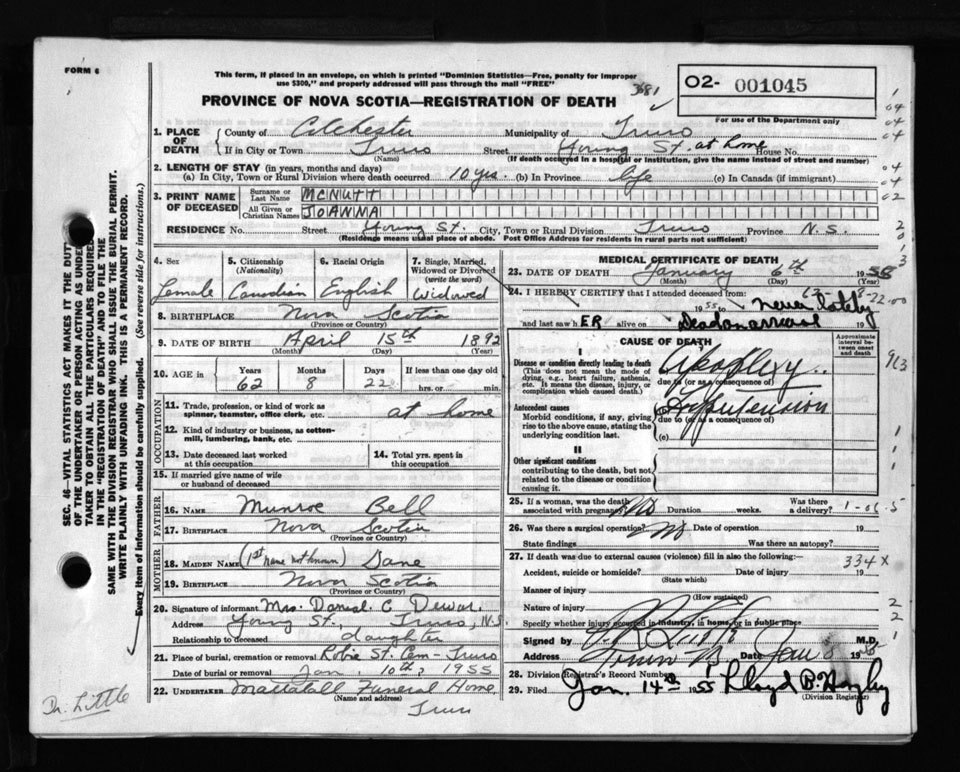 FORM 6
This form, if placed in an envelope, on which is printed "Dominion Statistics—Free, penalty for improper
use $300," and properly addressed will pass through the mail "FREE"
3681
02- 001045
For use of the Department only
PROVINCE OF NOVA SCOTIA—REGISTRATION OF DEATH
1. PLACE OF DEATH
County of Colchester Municipality of Truro
If in City or Town Truro Street Young St. at home House No.
(Name) (If death occurred in a hospital or institution, give the name instead of street and number)
2. LENGTH OF STAY (in years, months and days)
(a) In City, Town or Rural Division where death occurred 10 yrs. (b) In Province life (c) In Canada (if immigrant)
3. PRINT NAME OF DECEASED
Surname or Last Name MCNUTT
All Given or Christian Names JOANNA
RESIDENCE No. Street Young St. City, Town or Rural Division Truro Province N.S.
(Residence means usual place of abode. Post Office Address for residents in rural parts not sufficient)
4. Sex Female
5. Citizenship (Nationality) Canadian
6. Racial Origin English
7. Single, Married, Widowed or Divorced (write the word) Widowed
8. BIRTHPLACE Nova Scotia
(Province or Country)
9. DATE OF BIRTH April 15th 1892
(Month) (Day) (Year)
10. AGE in Years 62 Months 8 Days 22 If less than one day old hrs. or min.
OCCUPATION
11. Trade, profession, or kind of work as spinner, teamster, office clerk, etc. at home
12. Kind of industry or business, as cotton-mill, lumbering, bank, etc.
13. Date deceased last worked at this occupation
14. Total yrs. spent in this occupation
15. If married give name of wife or husband of deceased
FATHER
16. Name Munroe Bell
17. Birthplace Nova Scotia
(Province or Country)
MOTHER
18. Maiden Name (1st name not known) Dane
19. Birthplace Nova Scotia
(Province or Country)
20. Signature of informant Mrs. Daniel C. Dewar
Address Young St., Truro, N.S.
Relationship to deceased daughter
21. Place of burial, cremation or removal Robie St. Cem - Truro
Date of burial or removal Jan. 10th, 1955
22. UNDERTAKER Mattatall Funeral Home
(Name and address)
Truro
MEDICAL CERTIFICATE OF DEATH
23. DATE OF DEATH January 6th 19
(Month) (Day) (Year)
24. I HEREBY CERTIFY that I attended deceased from:
1955 to never
and last saw hER alive on Dead on arrival
CAUSE OF DEATH
Approximate interval between onset and death
I
Disease or condition directly leading to death
(This does not mean the mode of dying, e.g., heart failure, asthenia, etc. It means the disease, injury, or complication which caused death.)
Apoplexy
due to (or as a consequence of)
Antecedent causes
Morbid conditions, if any, giving rise to the above cause, stating the underlying condition last.
Hypertension
due to (or as a consequence of)
(c)
II
Other significant conditions
contributing to the death, but not related to the disease or condition causing it.
25. If a woman, was the death associated with pregnancy No Duration weeks. Was there a delivery?
26. Was there a surgical operation? No Date of operation 19
State findings Was there an autopsy?
27. If death was due to external causes (violence) fill in also the following:—
334X
Accident, suicide or homicide? Date of injury 19
(State which)
Manner of injury
(How sustained)
Nature of injury
Specify whether injury occurred in industry, in home, or in public place
Signed by M.D.
Address Truro Date Jan 8 19
28. Division Registrar's Record Number
29. Filed Jan. 14th 1955
(Division Registrar)
SEC. 46—VITAL STATISTICS ACT MAKES IT THE DUTY
OF THE UNDERTAKER OR PERSON ACTING AS UNDER
TAKER TO OBTAIN ALL THE PARTICULARS REQUIRED
IN THE "REGISTRATION OF DEATH" AND TO FILE THE
SAME WITH THE DIVISION REGISTRAR WHO SHALL ISSUE THE BURIAL PERMIT.
WRITE PLAINLY WITH UNFADING INK. THIS IS A PERMANENT RECORD.
Every item of information should be carefully supplied. (See reverse side for instructions.)
Dr. Little